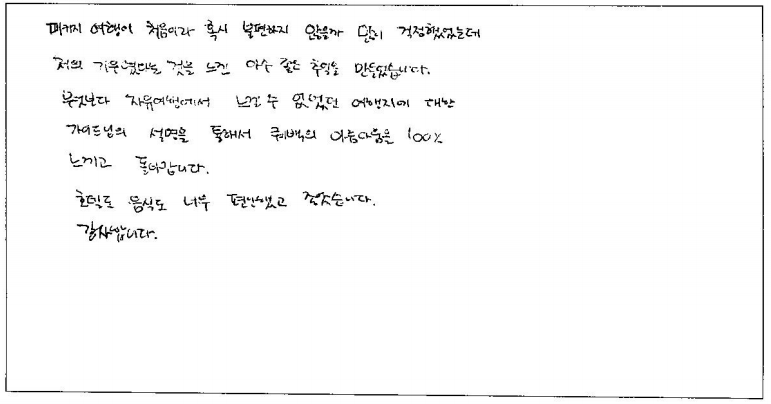 패키지 여행이 처음이라 혹시 불편하지 않을까 많이 걱정했었는데
저의 기우였다는 것을 느낀 아주 좋은 추억을 만들었습니다.
무엇보다 자유여행에서 느낄 수 없었던 여행지에 대한
가이드님의 설명을 통해서 퀘백의 아름다움을 100%
느끼고 돌아갑니다.
호텔도 음식도 너무 편안했고 좋았습니다.
감사합니다.